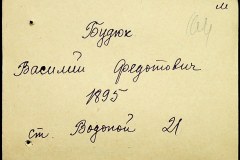 м
Будюк
Василий Федотович
1895
ст. Водопой 21